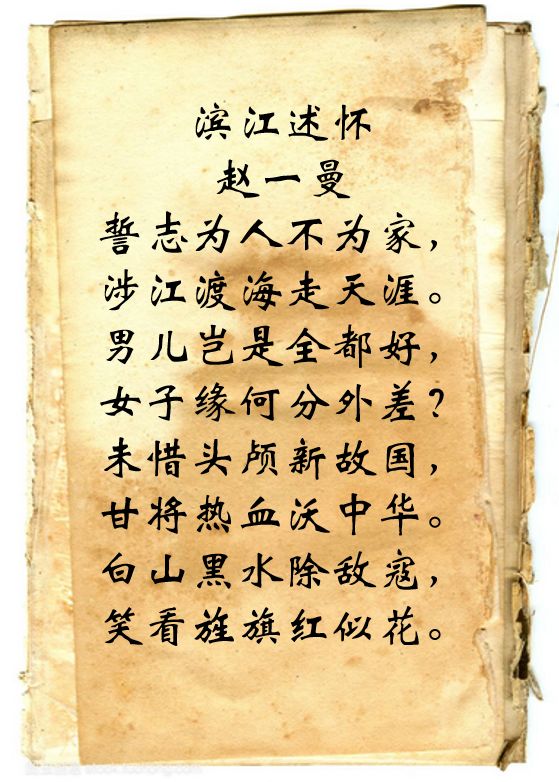 滨江述怀
赵一曼
誓志为人不为家，
涉江渡海走天涯。
男儿岂是全都好，
女子缘何分外差？
未惜头颅新故国，
甘将热血沃中华。
白山黑水除敌寇，
笑看旌旗红似花。